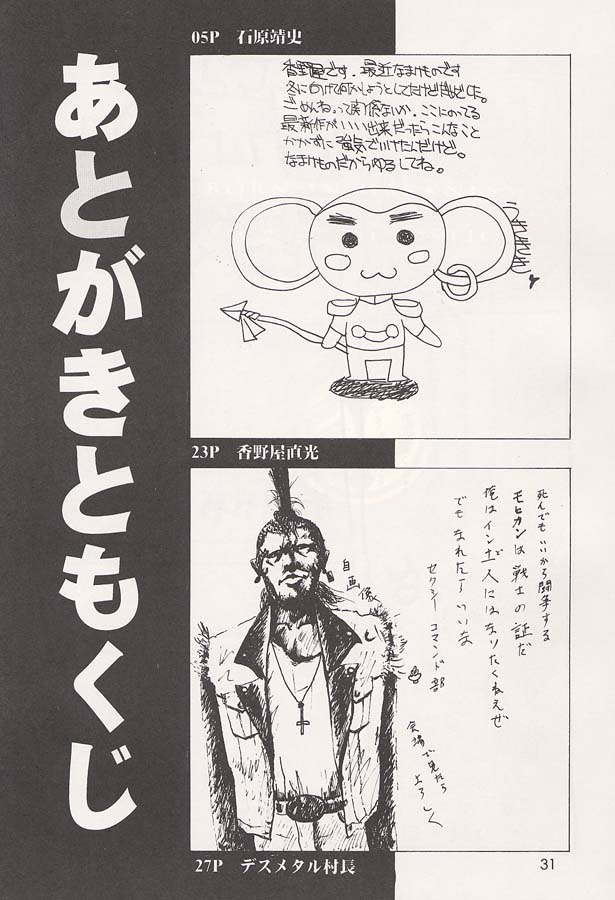 あとがきともくじ
05P 石原靖史
香野屋です。最近なまけものです
冬にむけて何かしようとしてたけどだめでした。
ごめんねって関係ないか。ここにのってる
最新作がいい出来だったらこんなこと
かかずに強気でいけたんだけど。
なまけものだからゆるしてね。
うききききっ
23P 香野屋直光
死んでもいいから闘争する
モヒカンは戦士の証だ
でもまれたァいいな
セクシーコマンドー部
自画像
会場で見たら
よろしく
27P デスメタル村長
31